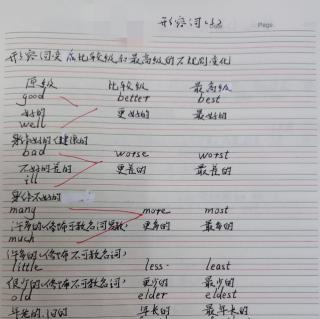 形容词
Page
形容词变 比较级和最高级的不规则变化
原级 比较级 最高级
good better best
好的 更好的 最好的
well
身体好的(健康的
bad worse worst
不好的 差的 更差的 最差的
ill
身体不好的
many more most
许多的(修饰可数名词复数) 更多的 最多的
much
许多的(修饰不可数名词)
little less least
很少的(修饰不可数名词) 更少的 最少的
old elder eldest
年老的,旧的 年长的 最年长的